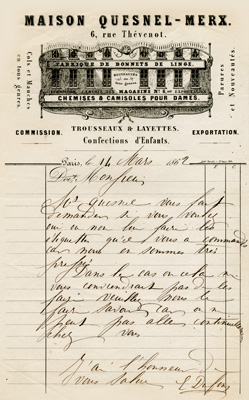 MAISON QUESNEL-MERX.
6, rue Thévenot.
Cols et Manches
en tous genres.
Parures
et Nouveautés.
FABRIQUE DE BONNETS DE LINGE.
MAGASINS Nº 6, ou EXPORTATION
CHEMISES & CAMISOLES POUR DAMES.
COMMISSION.
TROUSSEAUX & LAYETTES.
EXPORTATION.
Confections d'Enfants.
Paris, le 14 Mars 1862
Monsieur
Mr Quesnel vous fait
demander si vous voulez
oui ou non lui faire les
étiquettes qu'il vous a commandé
car nous en sommes très
pressé
Dans le cas ou cela ne
vous conviendrait pas de les
faire veuillez nous le
faire savoir car on ne
peut pas aller continuellement
chez vous
J'ai l'honneur de
vous saluer